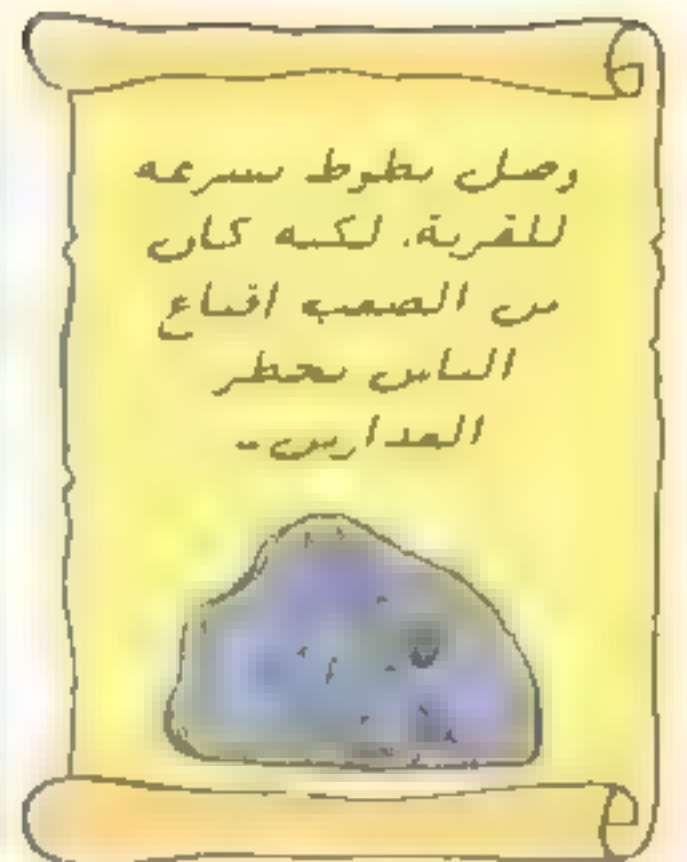 وصل بطوط بسرعه
للقرية. لكنه كان
من الصعب اقناع
الناس بخطر
المدارس..